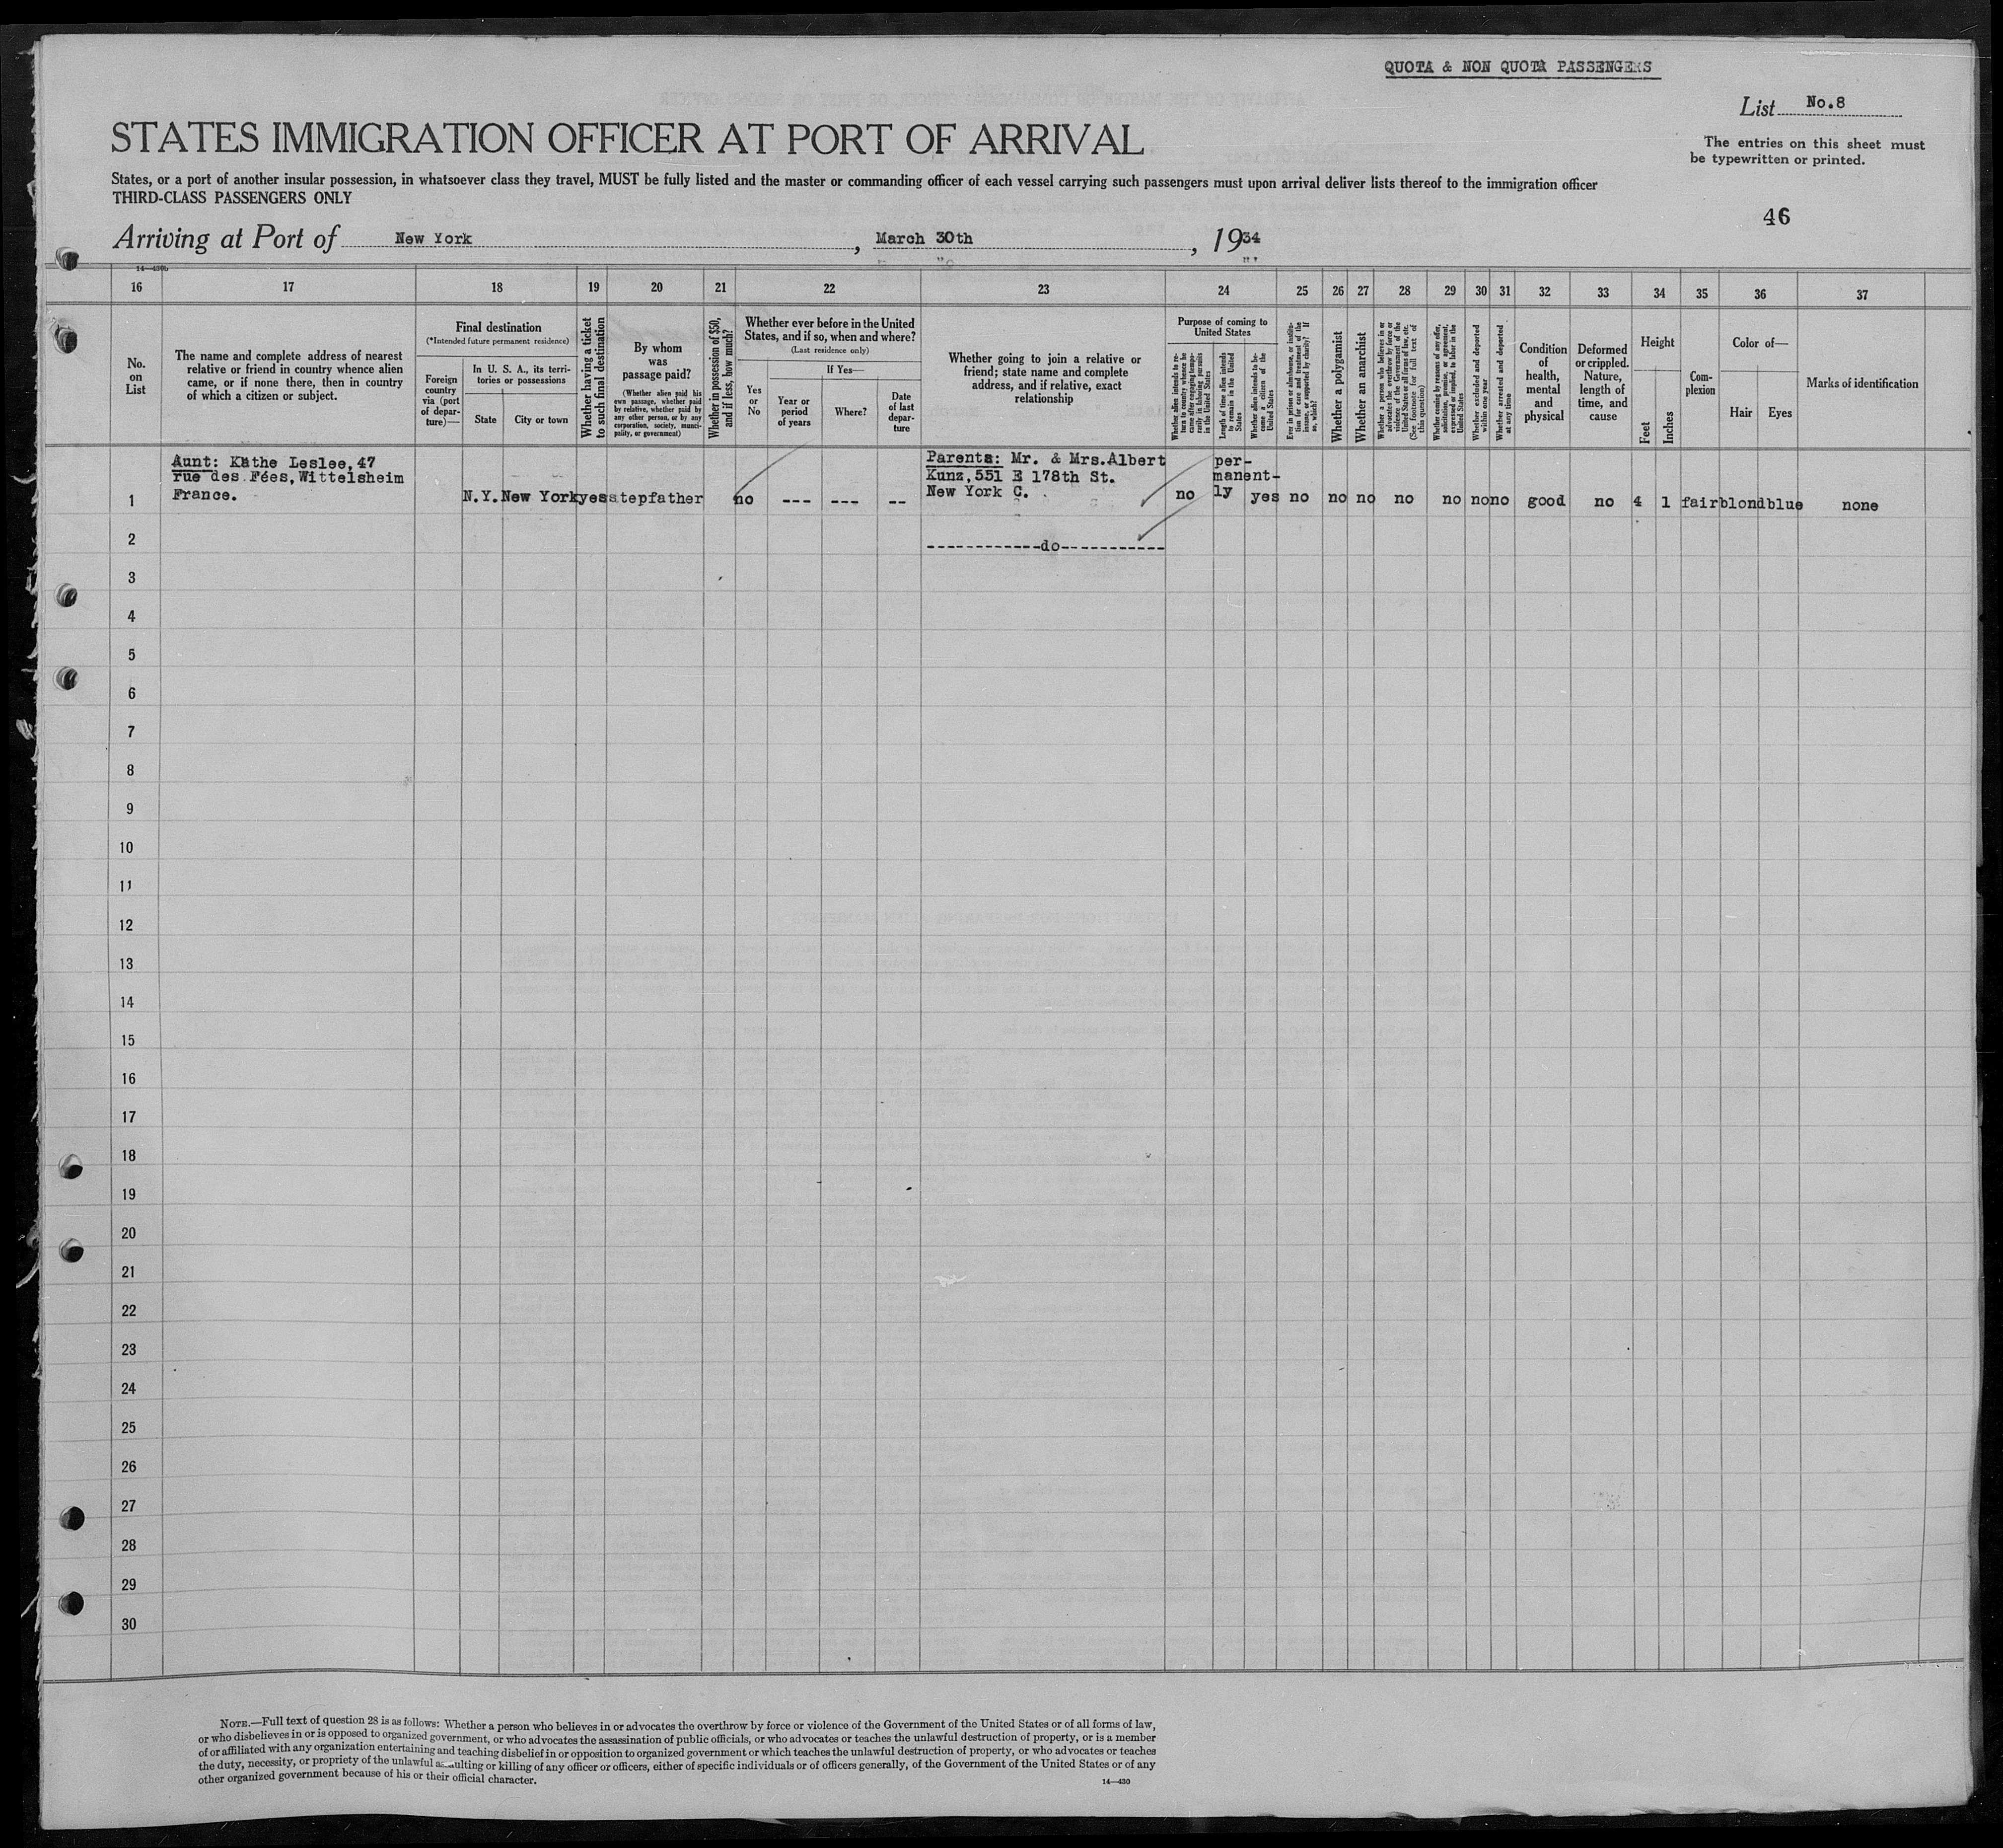 QUOTA & NON QUOTA PASSENGERS
List No.8
STATES IMMIGRATION OFFICER AT PORT OF ARRIVAL
The entries on this sheet must
be typewritten or printed.
States, or a port of another insular possession, in whatsoever class they travel, MUST be fully listed and the master or commanding officer of each vessel carrying such passengers must upon arrival deliver lists thereof to the immigration officer
THIRD-CLASS PASSENGERS ONLY
46
Arriving at Port of New York, March 30th, 1934
14—430b
16 17 18 19 20 21 22 23 24 25 26 27 28 29 30 31 32 33 34 35 36 37
No.
on
List
The name and complete address of nearest
relative or friend in country whence alien
came, or if none there, then in country
of which a citizen or subject.
Final destination
(*Intended future permanent residence)
Foreign
country
via (port
of depar-
ture)—
In U. S. A., its terri-
tories or possessions
State
City or town
Whether having a ticket
to such final destination
By whom
was
passage paid?
(Whether alien paid his
own passage, whether paid
by relative, whether paid by
any other person, or by any
corporation, society, munici-
pality, or government)
Whether in possession of $50,
and if less, how much?
Whether ever before in the United
States, and if so, when and where?
(Last residence only)
Yes
or
No
If Yes—
Year or
period
of years
Where?
Date
of last
depar-
ture
Whether going to join a relative or
friend; state name and complete
address, and if relative, exact
relationship
Purpose of coming to
United States
Whether alien intends to re-
turn to country whence he
came after engaging tempo-
rarily in laboring pursuits
in the United States
Length of time alien intends
to remain in the United
States
Whether alien intends to be-
come a citizen of the
United States
Ever in prison or almshouse, or institu-
tion for care and treatment of the
insane, or supported by charity? If
so, which?
Whether a polygamist
Whether an anarchist
Whether a person who believes in or
advocates the overthrow by force or
violence of the Government of the
United States or all forms of law, etc.
(See footnote for full text of
this question)
Whether coming by reasons of any offer,
solicitation, promise, or agreement,
expressed or implied, to labor in the
United States
Whether excluded and deported
within one year
Whether arrested and deported
at any time
Condition
of
health,
mental
and
physical
Deformed
or crippled.
Nature,
length of
time, and
cause
Height
Feet
Inches
Com-
plexion
Color of—
Hair
Eyes
Marks of identification
Aunt: Käthe Leslee, 47
rue des Fées, Wittelsheim
France.
Parents: Mr. & Mrs.Albert
Kunz, 551 E 178th St.
New York C.
per-
manent-
ly
1 N.Y. New York yes stepfather no --- --- -- no yes no no no no no no no good no 4 1 fair blond blue none
2 ------------do-----------
3
4
5
6
7
8
9
10
11
12
13
14
15
16
17
18
19
20
21
22
23
24
25
26
27
28
29
30
NOTE.—Full text of question 28 is as follows: Whether a person who believes in or advocates the overthrow by force or violence of the Government of the United States or of all forms of law,
or who disbelieves in or is opposed to organized government, or who advocates the assassination of public officials, or who advocates or teaches the unlawful destruction of property, or is a member
of or affiliated with any organization entertaining and teaching disbelief in or opposition to organized government or which teaches the unlawful destruction of property, or who advocates or teaches
the duty, necessity, or propriety of the unlawful assaulting or killing of any officer or officers, either of specific individuals or of officers generally, of the Government of the United States or of any
other organized government because of his or their official character.
14—430